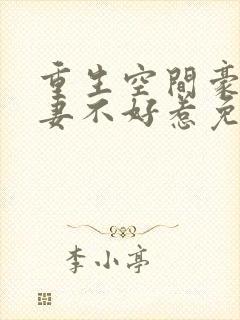 重生空間豪
妻不好惹免
李小亭